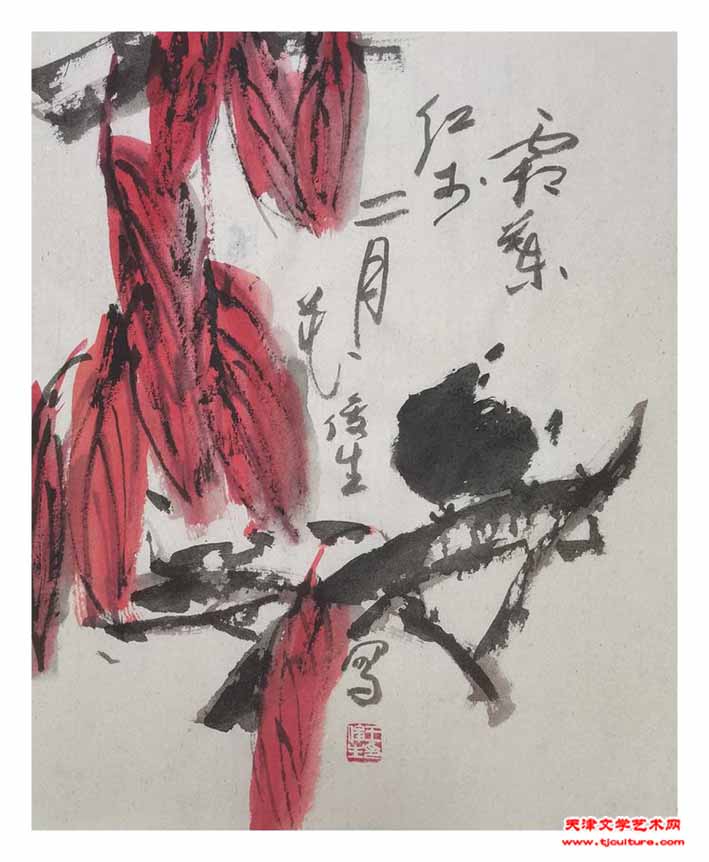 霜葉
红於
二月
花俊生
写
天津文学艺术网
www.tjculture.com